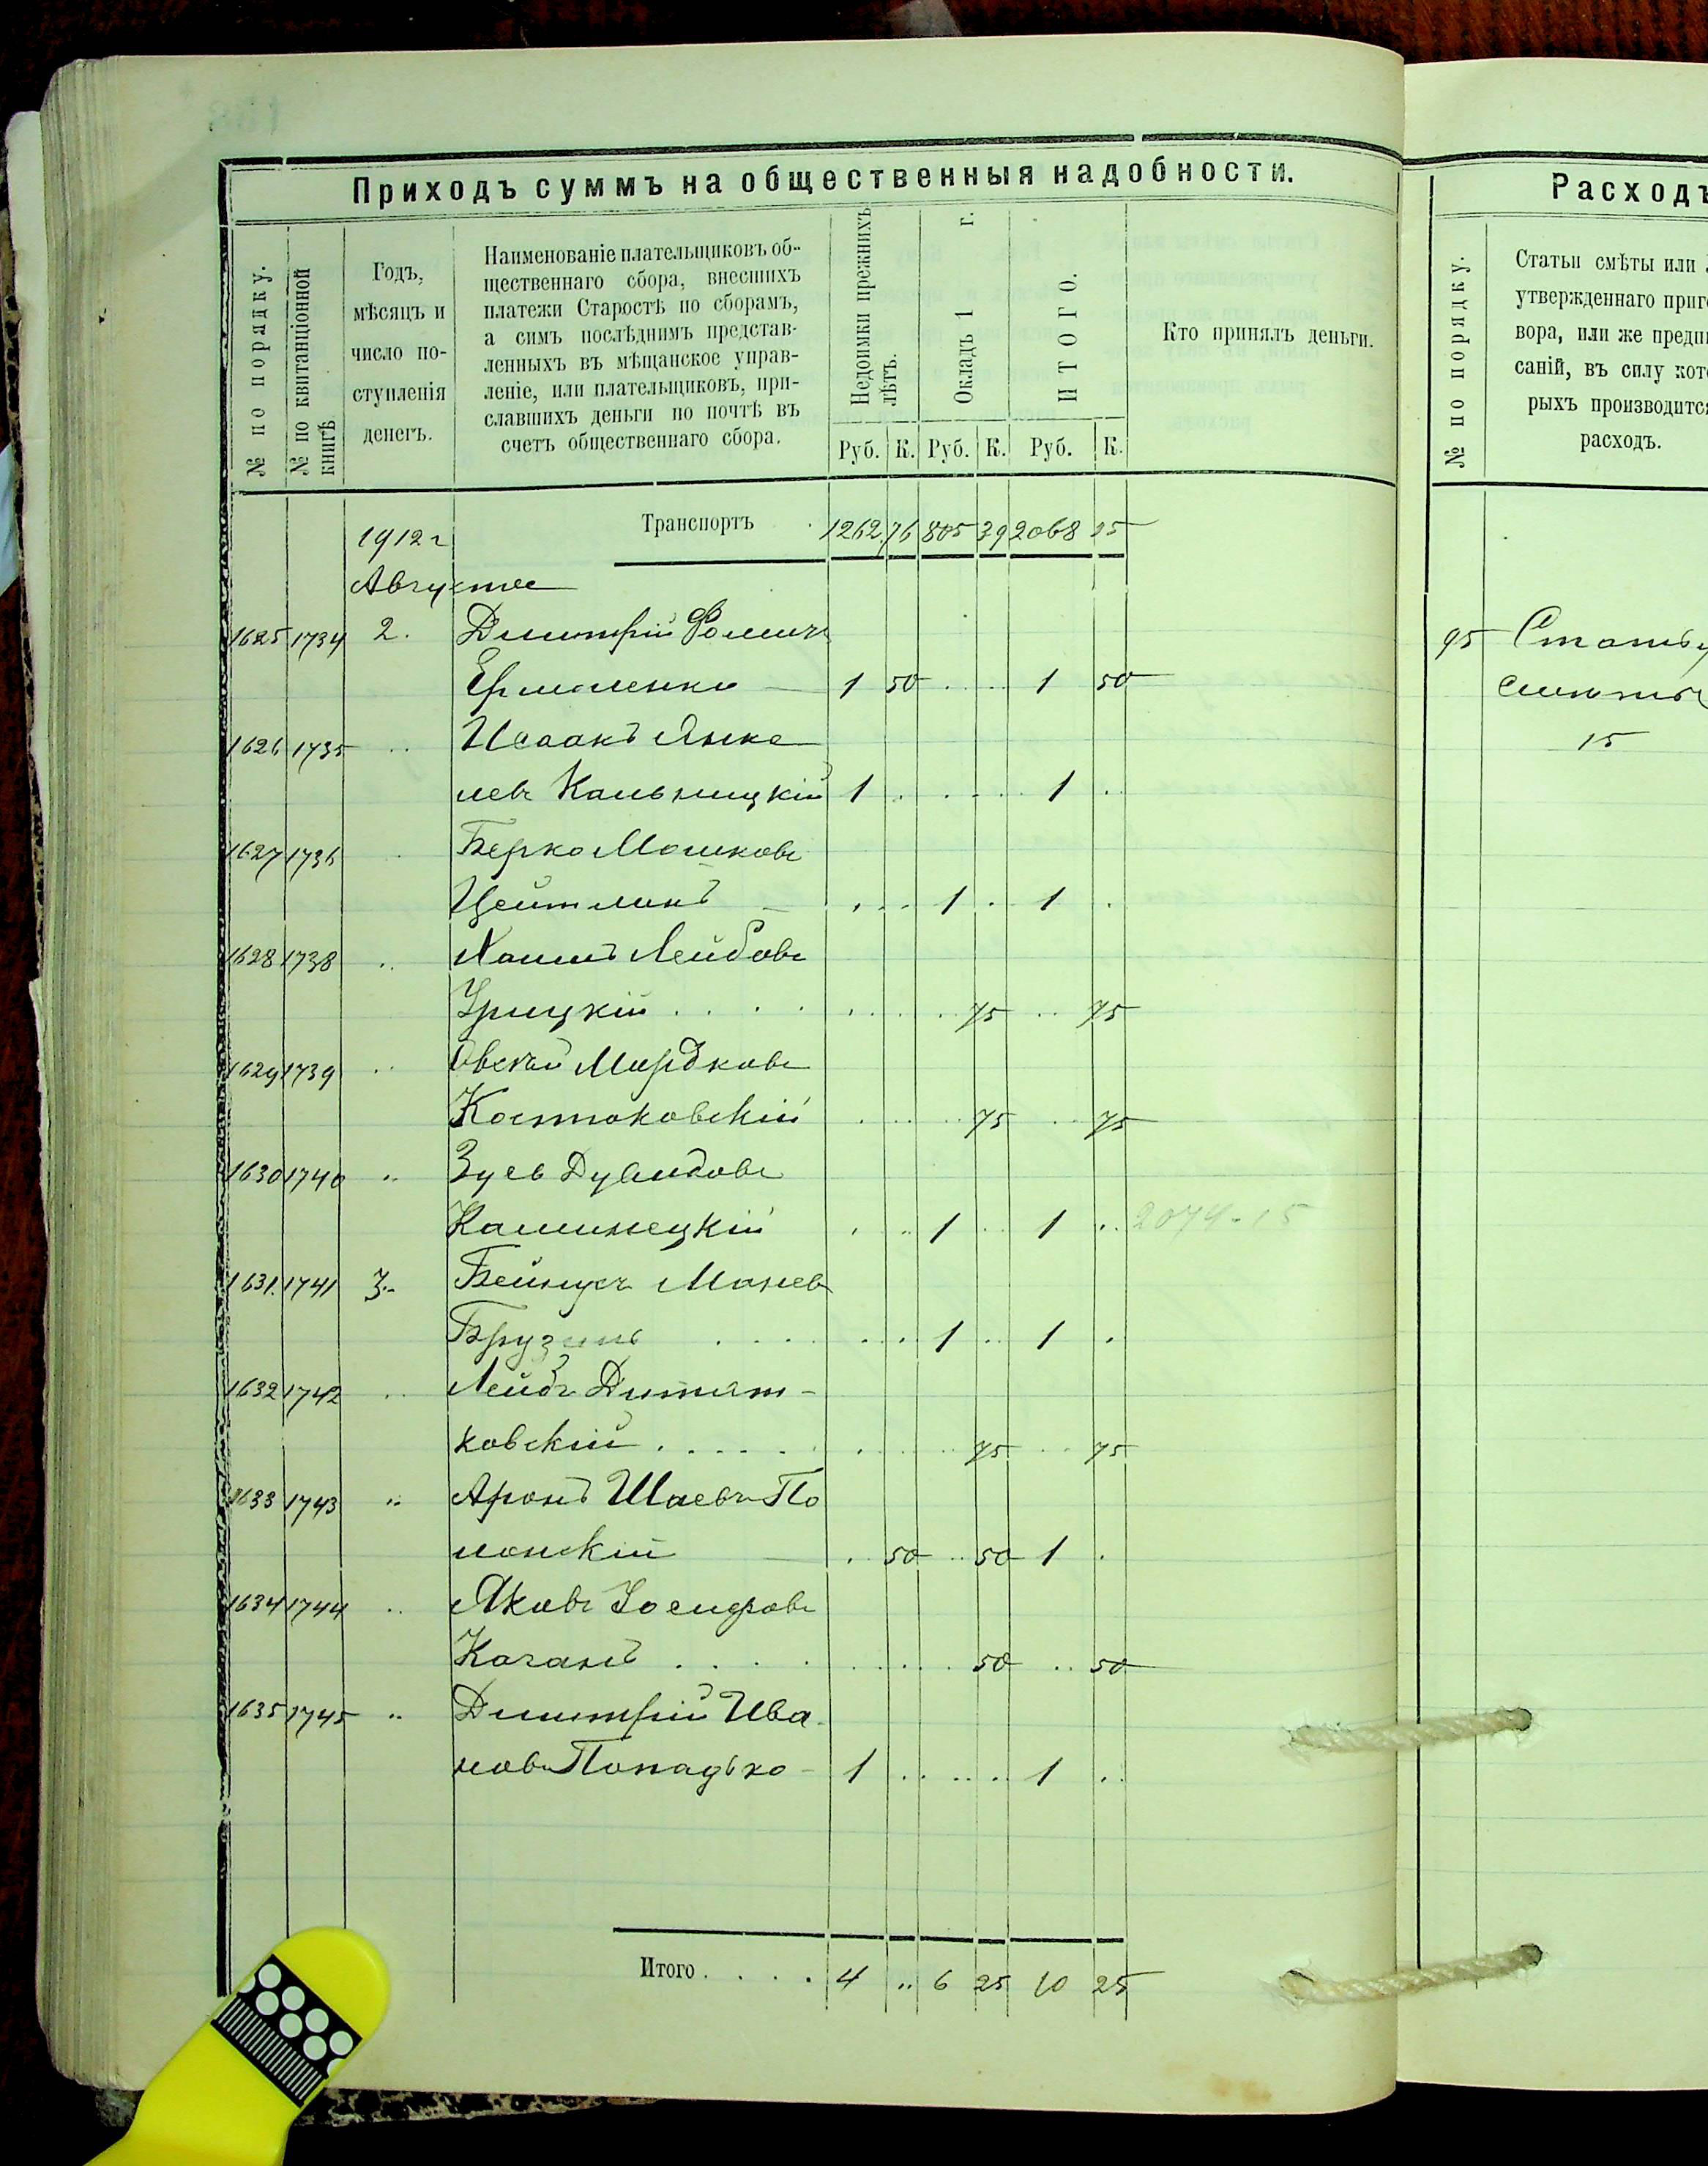 Приходъ суммъ на общественныя надобности.
№ по порядку.
№ по квитанціонной книгѣ
Годъ,
мѣсяцъ и
число по-
ступленія
денегъ.
Наименованіе плательщиковъ об-
щественнаго сбора, внесшихъ
платежи Старостѣ по сборамъ,
а симъ послѣднимъ представ-
ленныхъ въ мѣщанское управ-
леніе, или плательщиковъ, при-
славшихъ деньги по почтѣ въ
счетъ общественнаго сбора.
Недоимки прежнихъ лѣтъ.
Окладъ 1 г.
ИТОГО.
Руб. К. Руб. К. Руб. К.
Кто принялъ деньги.
1912 г Транспортъ 1262 76 805 39 2068 15
Августа
1625 1734 2. Дмитрій Фомичъ
Ермоленко 1 50 1 50
1626 1735 Исаакъ Янке
левъ Кальницкій 1 1
1627 1736 Берко Мошковъ
Цейтлинъ 1 1
1628 1738 Хаимъ Лейбовъ
Урицкій 75 75
1629 1739 Овсей Мордковъ
Костоковскій 75 75
1630 1740 Зусь Дувидовъ
Каминецкій 1 1 2074-15
1631 1741 3 Бейнусъ Маневъ
Брузинъ 1 1
1632 1742 Лейбъ Дитят-
ковскій 75 75
1633 1743 Аронъ Шаевъ По
лонскій 50 50 1
1634 1744 Яковъ Іосифовъ
Каганъ 50 50
1635 1745 Дмитрій Ива
новъ Попадько 1 1
Итого 4 6 25 10 25
Расходъ
№ по порядку.
Статьи смѣты или
утвержденнаго приго
вора, или же предпи
саній, въ силу кото
рыхъ производится
расходъ.
95
15